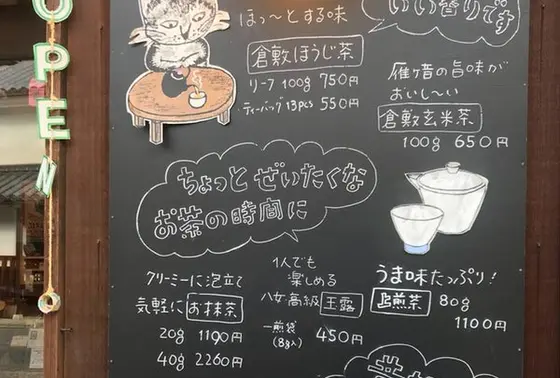 OPEN
ほっ〜とする味
倉敷ほうじ茶
リーフ 100g 750円
ティーバッグ 13pcs 550円
いい香りです
雁ヶ音の旨味が
おいし〜い
倉敷玄米茶
100g 650円
ちょっと ぜいたくな
お茶の時間に
クリーミーに泡立て
気軽に お抹茶
20g 1190円
40g 2260円
1人でも
楽しめる
八女高級 玉露
一煎袋
(8g入) 450円
うま味たっぷり!
上煎茶 80g
1100円